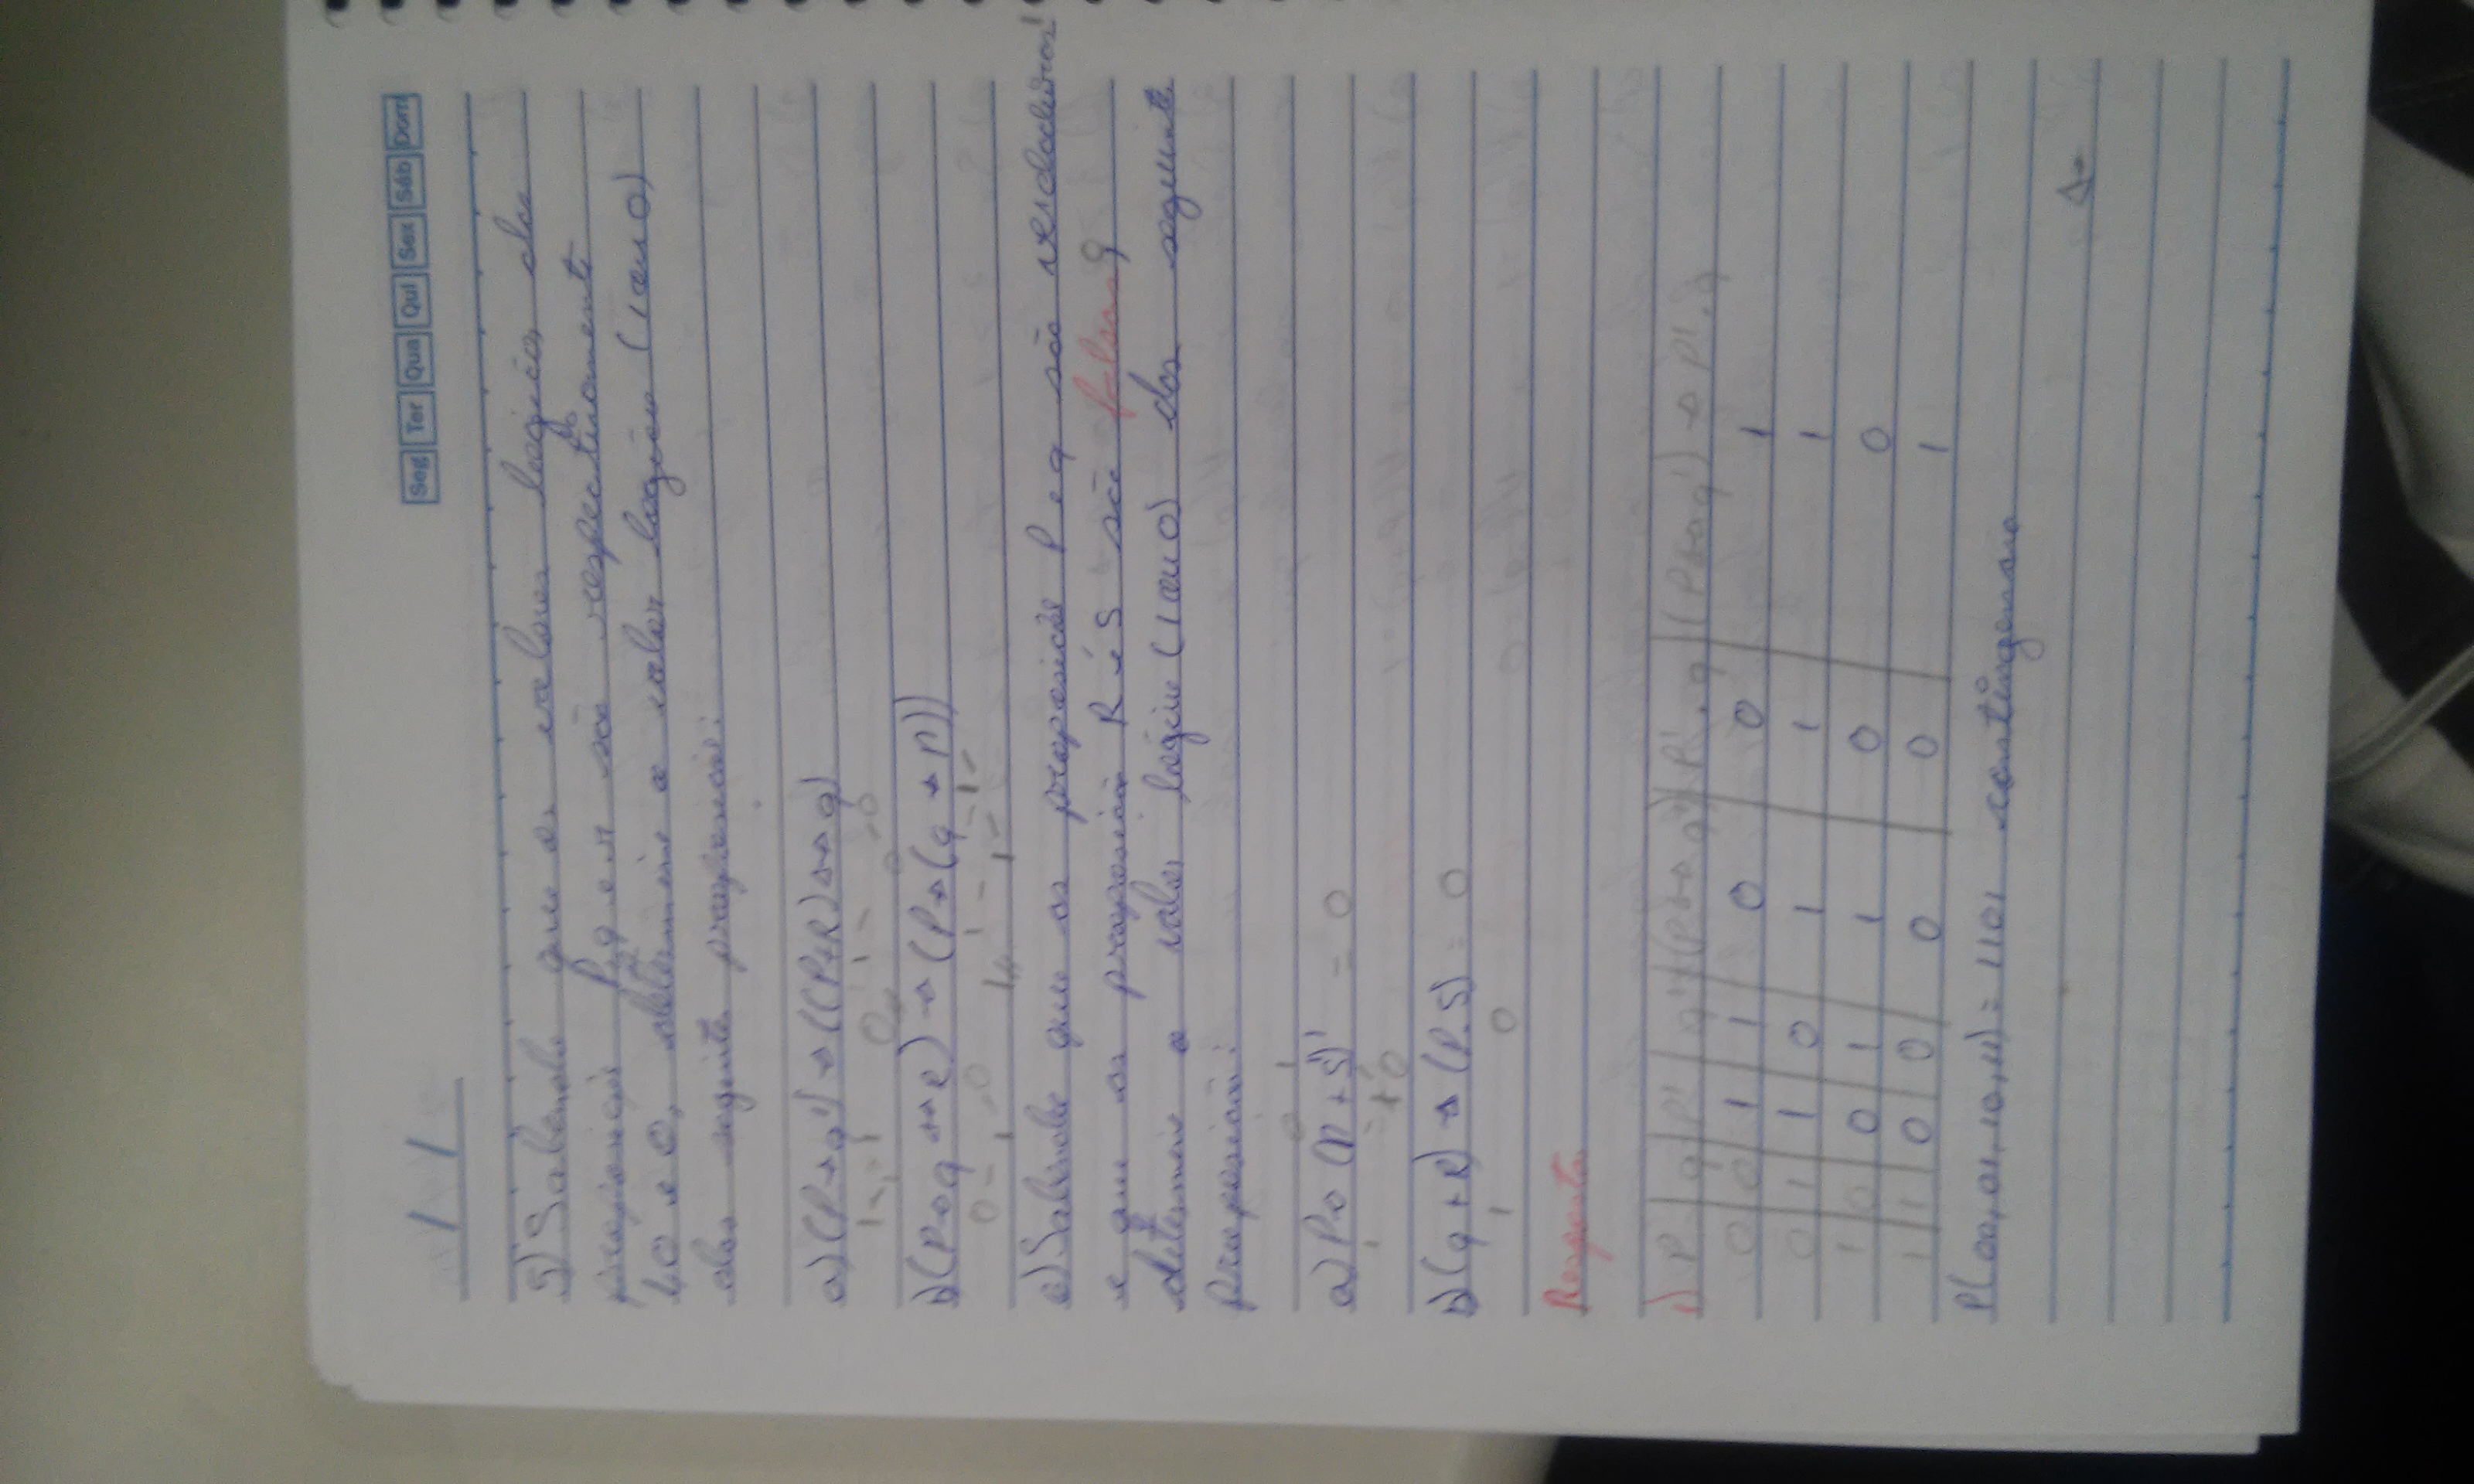 / /
Seg Ter Qua Qui Sex Sáb Dom
5) Sabendo que os valores lógicos das
proposições P, q e r são respectivamente
1, 0 e 0, determine o valor lógico (1 ou 0)
das seguinte proposições:
a) (P ↔ q') → ((P+R) ↔ q)
b) (P → q ↔ R) → (P → (q + r))
6) Sabendo que as proposições P e q são verdadeiras
e que as proposição R é S são falsas,
determine o valor lógico (1 ou 0) das seguinte
proposições:
a) P → (r + S)' = 0
b) (q + R) → (P.S) = 0
0
1
Resposta
1) P q P' q' (P ↔ q') P'.q (P ↔ q') → P'.q
0 0 1 1 0 0 1
0 1 1 0 1 1 1
1 0 0 1 1 0 0
1 1 0 0 0 0 1
P(00,01,10,11) = 1101 contingencia